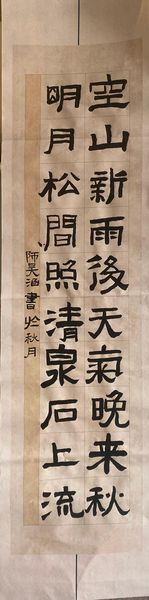 空山新雨後天氣晚来秋
明月松間照清泉石上流
書於秋月